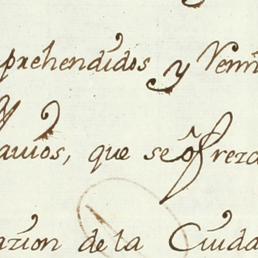 prehendidos y Veni
avios, que se ofrezc
azion de la Ciuda